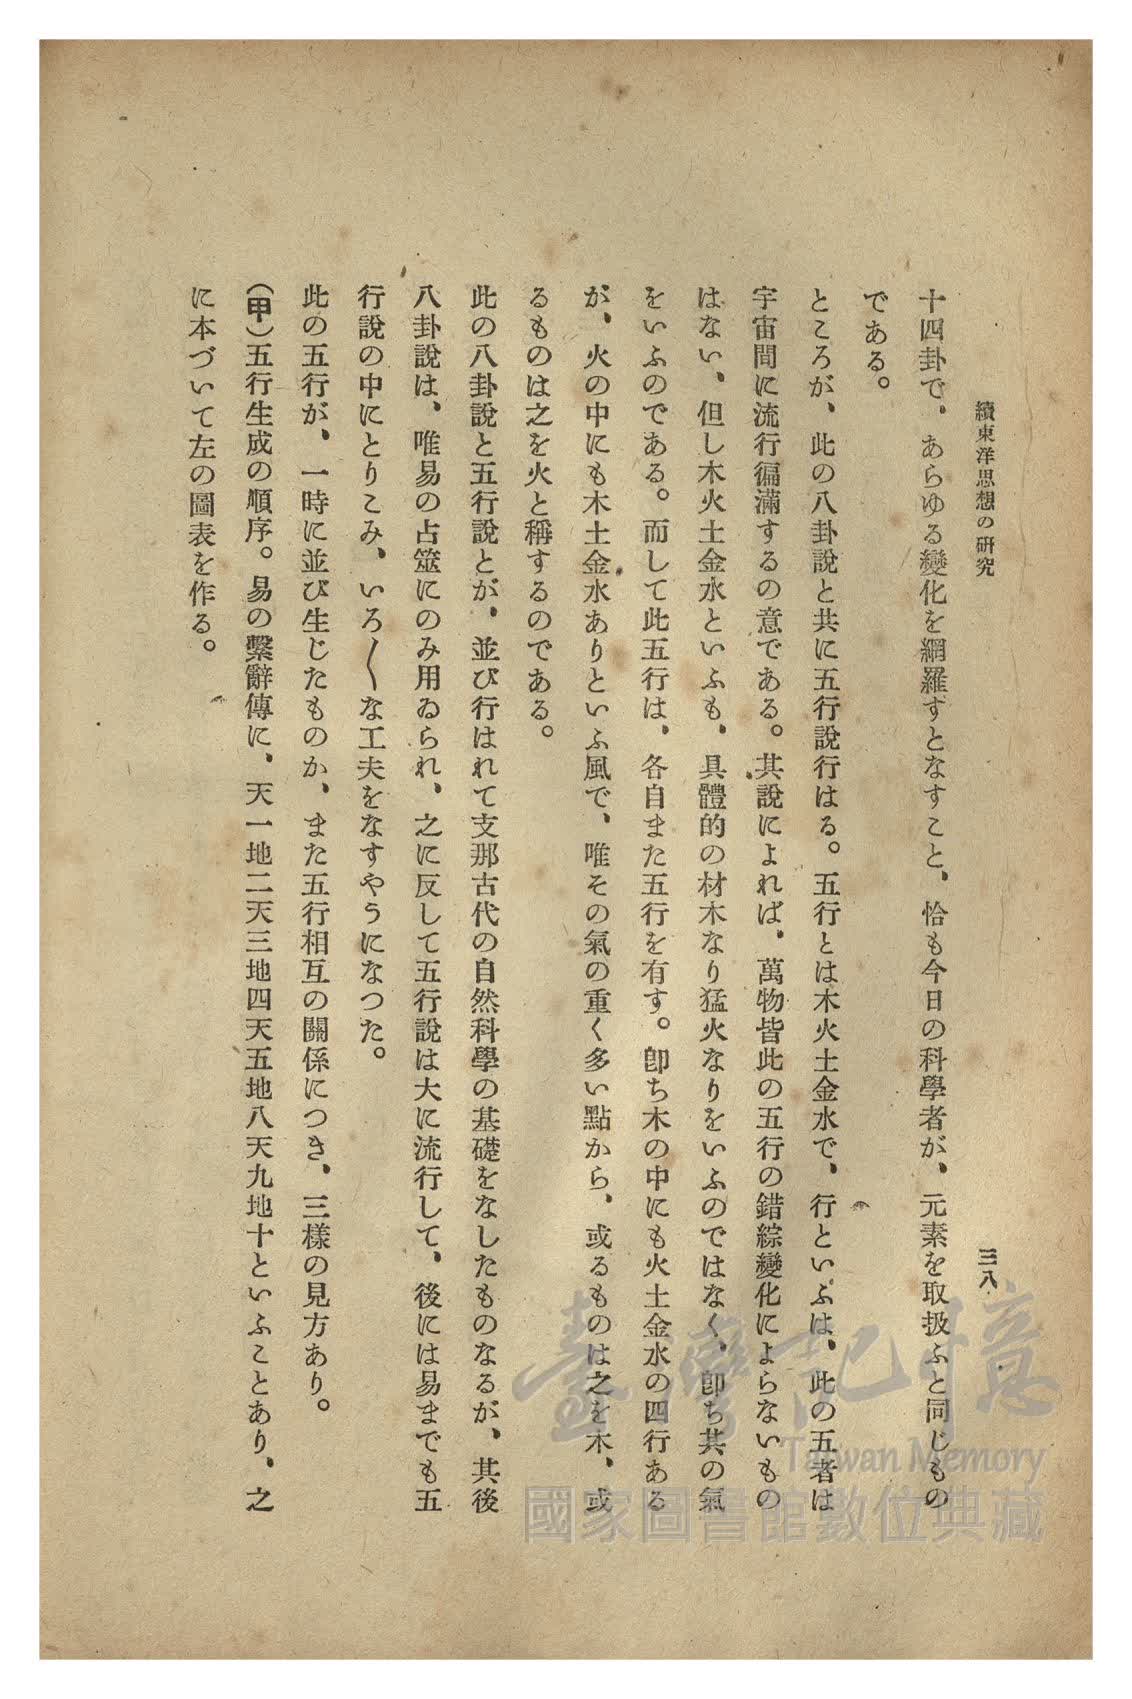 續東洋思想の研究
三八
十四卦で、あらゆる變化を網羅すとなすこと、恰も今日の科學者が、元素を取扱ふと同じもの
である。
ところが、此の八卦說と共に五行說行はる。五行とは木火土金水で、行といふは、此の五者は
宇宙間に流行徧滿するの意である。其說によれば、萬物皆此の五行の錯綜變化によらないもの
はない、但し木火土金水といふも、具體的の材木なり猛火なりをいふのではなく、卽ち其の氣
をいふのである。而して此五行は、各自また五行を有す。卽ち木の中にも火土金水の四行ある
が、火の中にも木土金水ありといふ風で、唯その氣の重く多い點から、或るものは之を木、或
るものは之を火と稱するのである。
此の八卦說と五行說とが、並び行はれて支那古代の自然科學の基礎をなしたものなるが、其後
八卦說は、唯易の占筮にのみ用ゐられ、之に反して五行說は大に流行して、後には易までも五
行說の中にとりこみ、いろ〱な工夫をなすやうになつた。
此の五行が、一時に並び生じたものか、また五行相互の關係につき、三樣の見方あり。
(甲)五行生成の順序。易の繫辭傳に、天一地二天三地四天五地八天九地十といふことあり、之
に本づいて左の圖表を作る。
臺灣記憶
Taiwan Memory
國家圖書館數位典藏